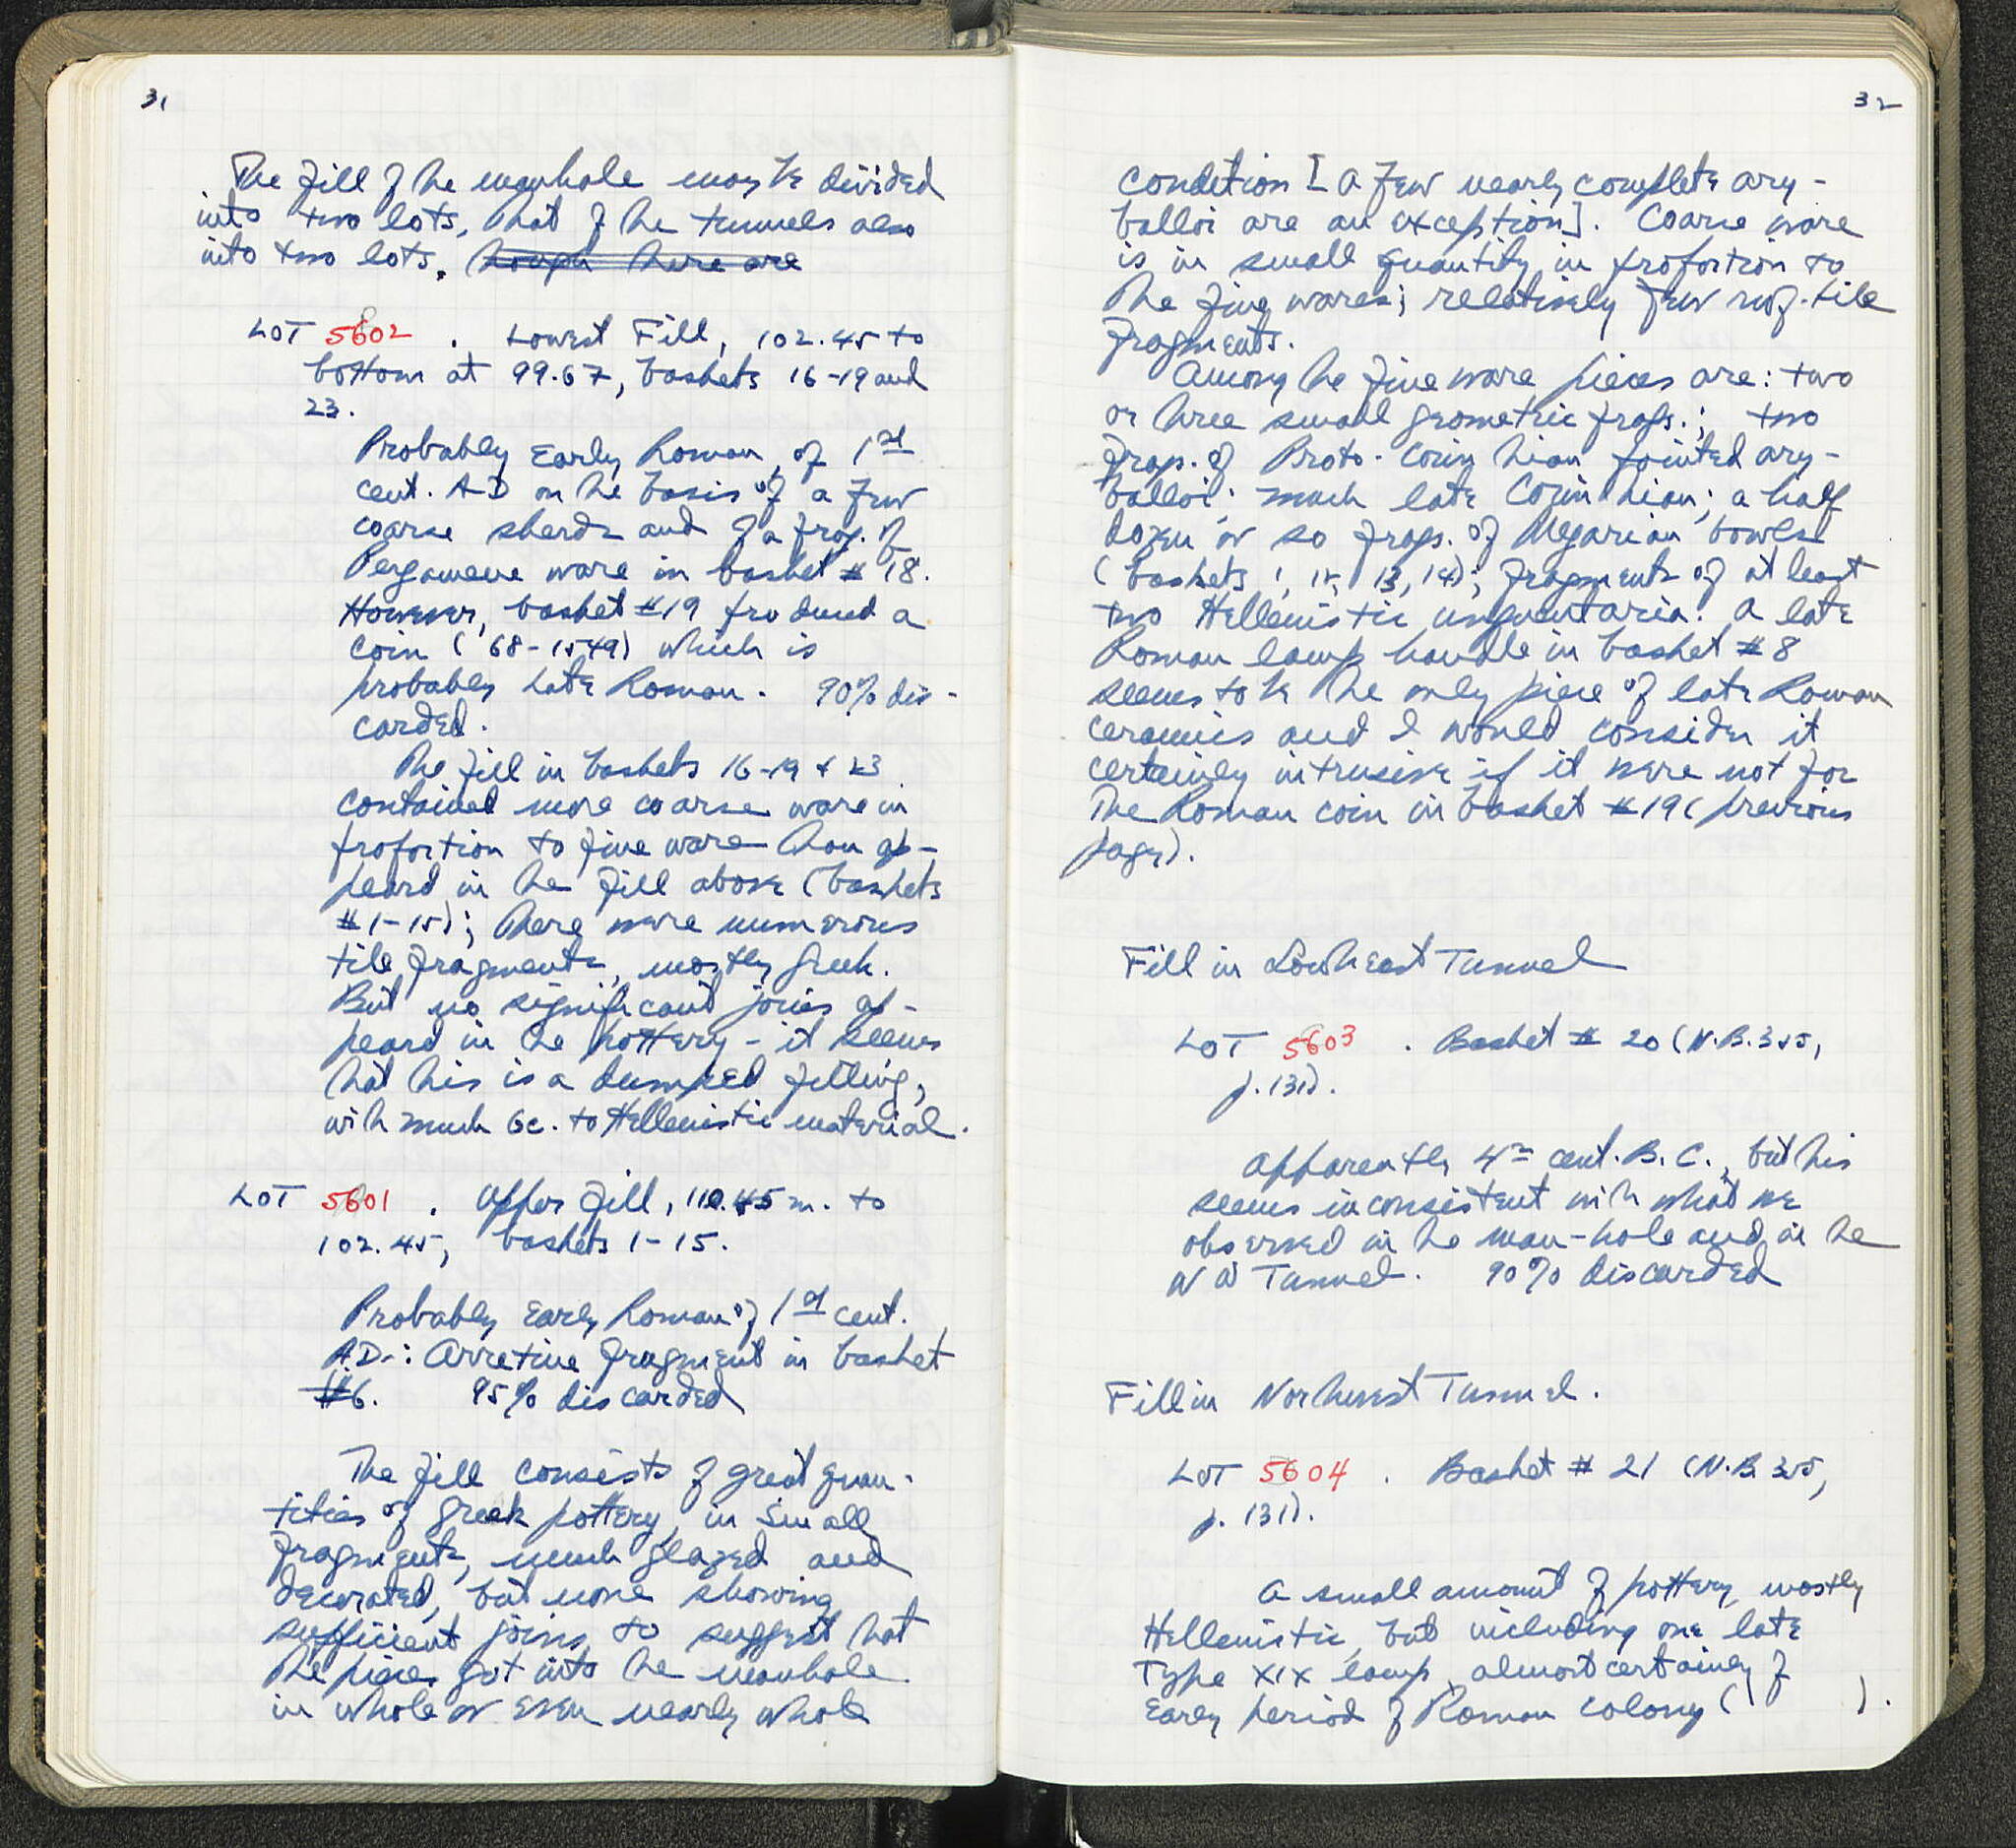 31
The fill of the manhole may be divided
into two lots, that of the tunnels also
into two lots. though there are
LOT 5602 . Lowest Fill, 102.45 to
bottom at 99.67, baskets 16-19 and
23.
Probably Early Roman, of 1st
cent. AD on the basis of a few
coarse sherds and of a frag. of
Pergamene ware in basket # 18.
However, basket #19 produced a
coin ('68-1549) which is
probably Late Roman. 90% dis-
carded.
The fill in baskets 16-19 & 23
contained more coarse ware in
proportion to fine ware than ap-
peard in the fill above (baskets
#1-15); there were numerous
tile fragments, mostly Greek.
But no significant joins ap-
peard in the pottery - it seems
that this is a dumped filling,
with much 6c. to Hellenistic material.
LOT 5601 . Upper fill, 110.45 m. to
102.45, baskets 1-15.
Probably Early Roman of 1st cent.
A.D.: Arretine fragment in basket
#6. 95% discarded
The fill consists of great quan-
tities of Greek pottery, in small
fragments, much glazed and
decorated, but none showing
sufficient joins to suggest that
the pieces got into the manhole
in whole or even nearly whole
32
condition [a few nearly complete ary-
balloi are an exception]. Coarse ware
is in small quantity in proportion to
the fine wares; relatively few roof-tile
fragments.
Among the fine ware pieces are: two
or three small geometric frags.; two
frags. of Proto-Corinthian pointed ary-
balloi; much late Corinthian; a half
dozen or so frags. of Megarian bowls
(baskets 1, 12, 13, 14); fragments of at least
two Hellenistic unguentaria. A late
Roman lamp handle in basket #8
seems to be the only piece of late Roman
ceramics and I would consider it
certainly intrusive if it were not for
the Roman coin in basket #19 (previous
page).
Fill in Southeast Tunnel
LOT 5603 . Basket # 20 (N.B. 355,
p. 131).
Apparently 4th cent. B.C., but this
seems inconsistent with what we
observed in the man-hole and in the
NW Tunnel. 90% discarded
Fill in Northwest Tunnel.
LOT 5604 . Basket # 21 (N.B. 355,
p. 131).
A small amount of pottery, mostly
Hellenistic, but including one late
Type XIX lamp, almost certainly of
Early period of Roman colony ( ).